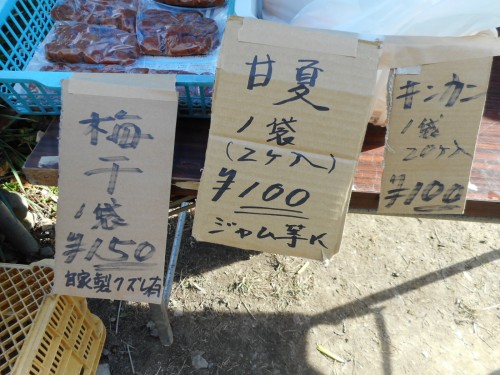 梅
干
1袋
¥150
自家製クズレ有
甘夏
1袋
(2ケ入)
¥100
ジャム芋K
キンカン
1袋
20ケ入
¥100